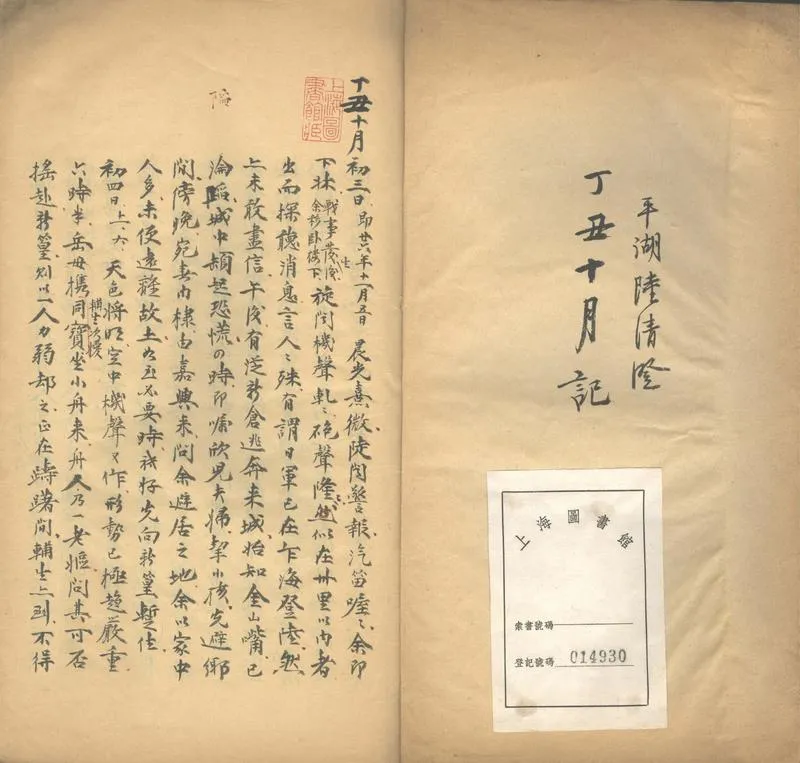 平湖陸清澄
丁丑十月記
上海圖書館
索書號碼
登記號碼 014930
上海圖書館藏
丁丑十月初三日即廿六年十一月五日 晨光熹微陡聞警報汽笛喔々余即
下牀戰事發生後余移臥樓下旋聞機聲軋々砲聲隆々然似在卅里以內者
出而探聽消息言人々殊有謂日軍已在乍海登陸然
亦未敢盡信午後有從新倉逃奔來城始知金山嘴已
陷
淪陷城中頓起恐慌の時即囑欣兒夫婦挈小孩先避鄉
間傍晚宛春內棣由嘉興來問余避居之地余以家中
人多未便遠離故土如至必要時祇好先向新篁暫住
初四日上、六、天色將明空中機聲又作形勢已極趨嚴重
六時半岳母攜同寶輔生次媛坐小舟來舟人乃一老嫗問其可否
搖赴新篁則以一人力弱却之正在躊躇間輔生亦到不得